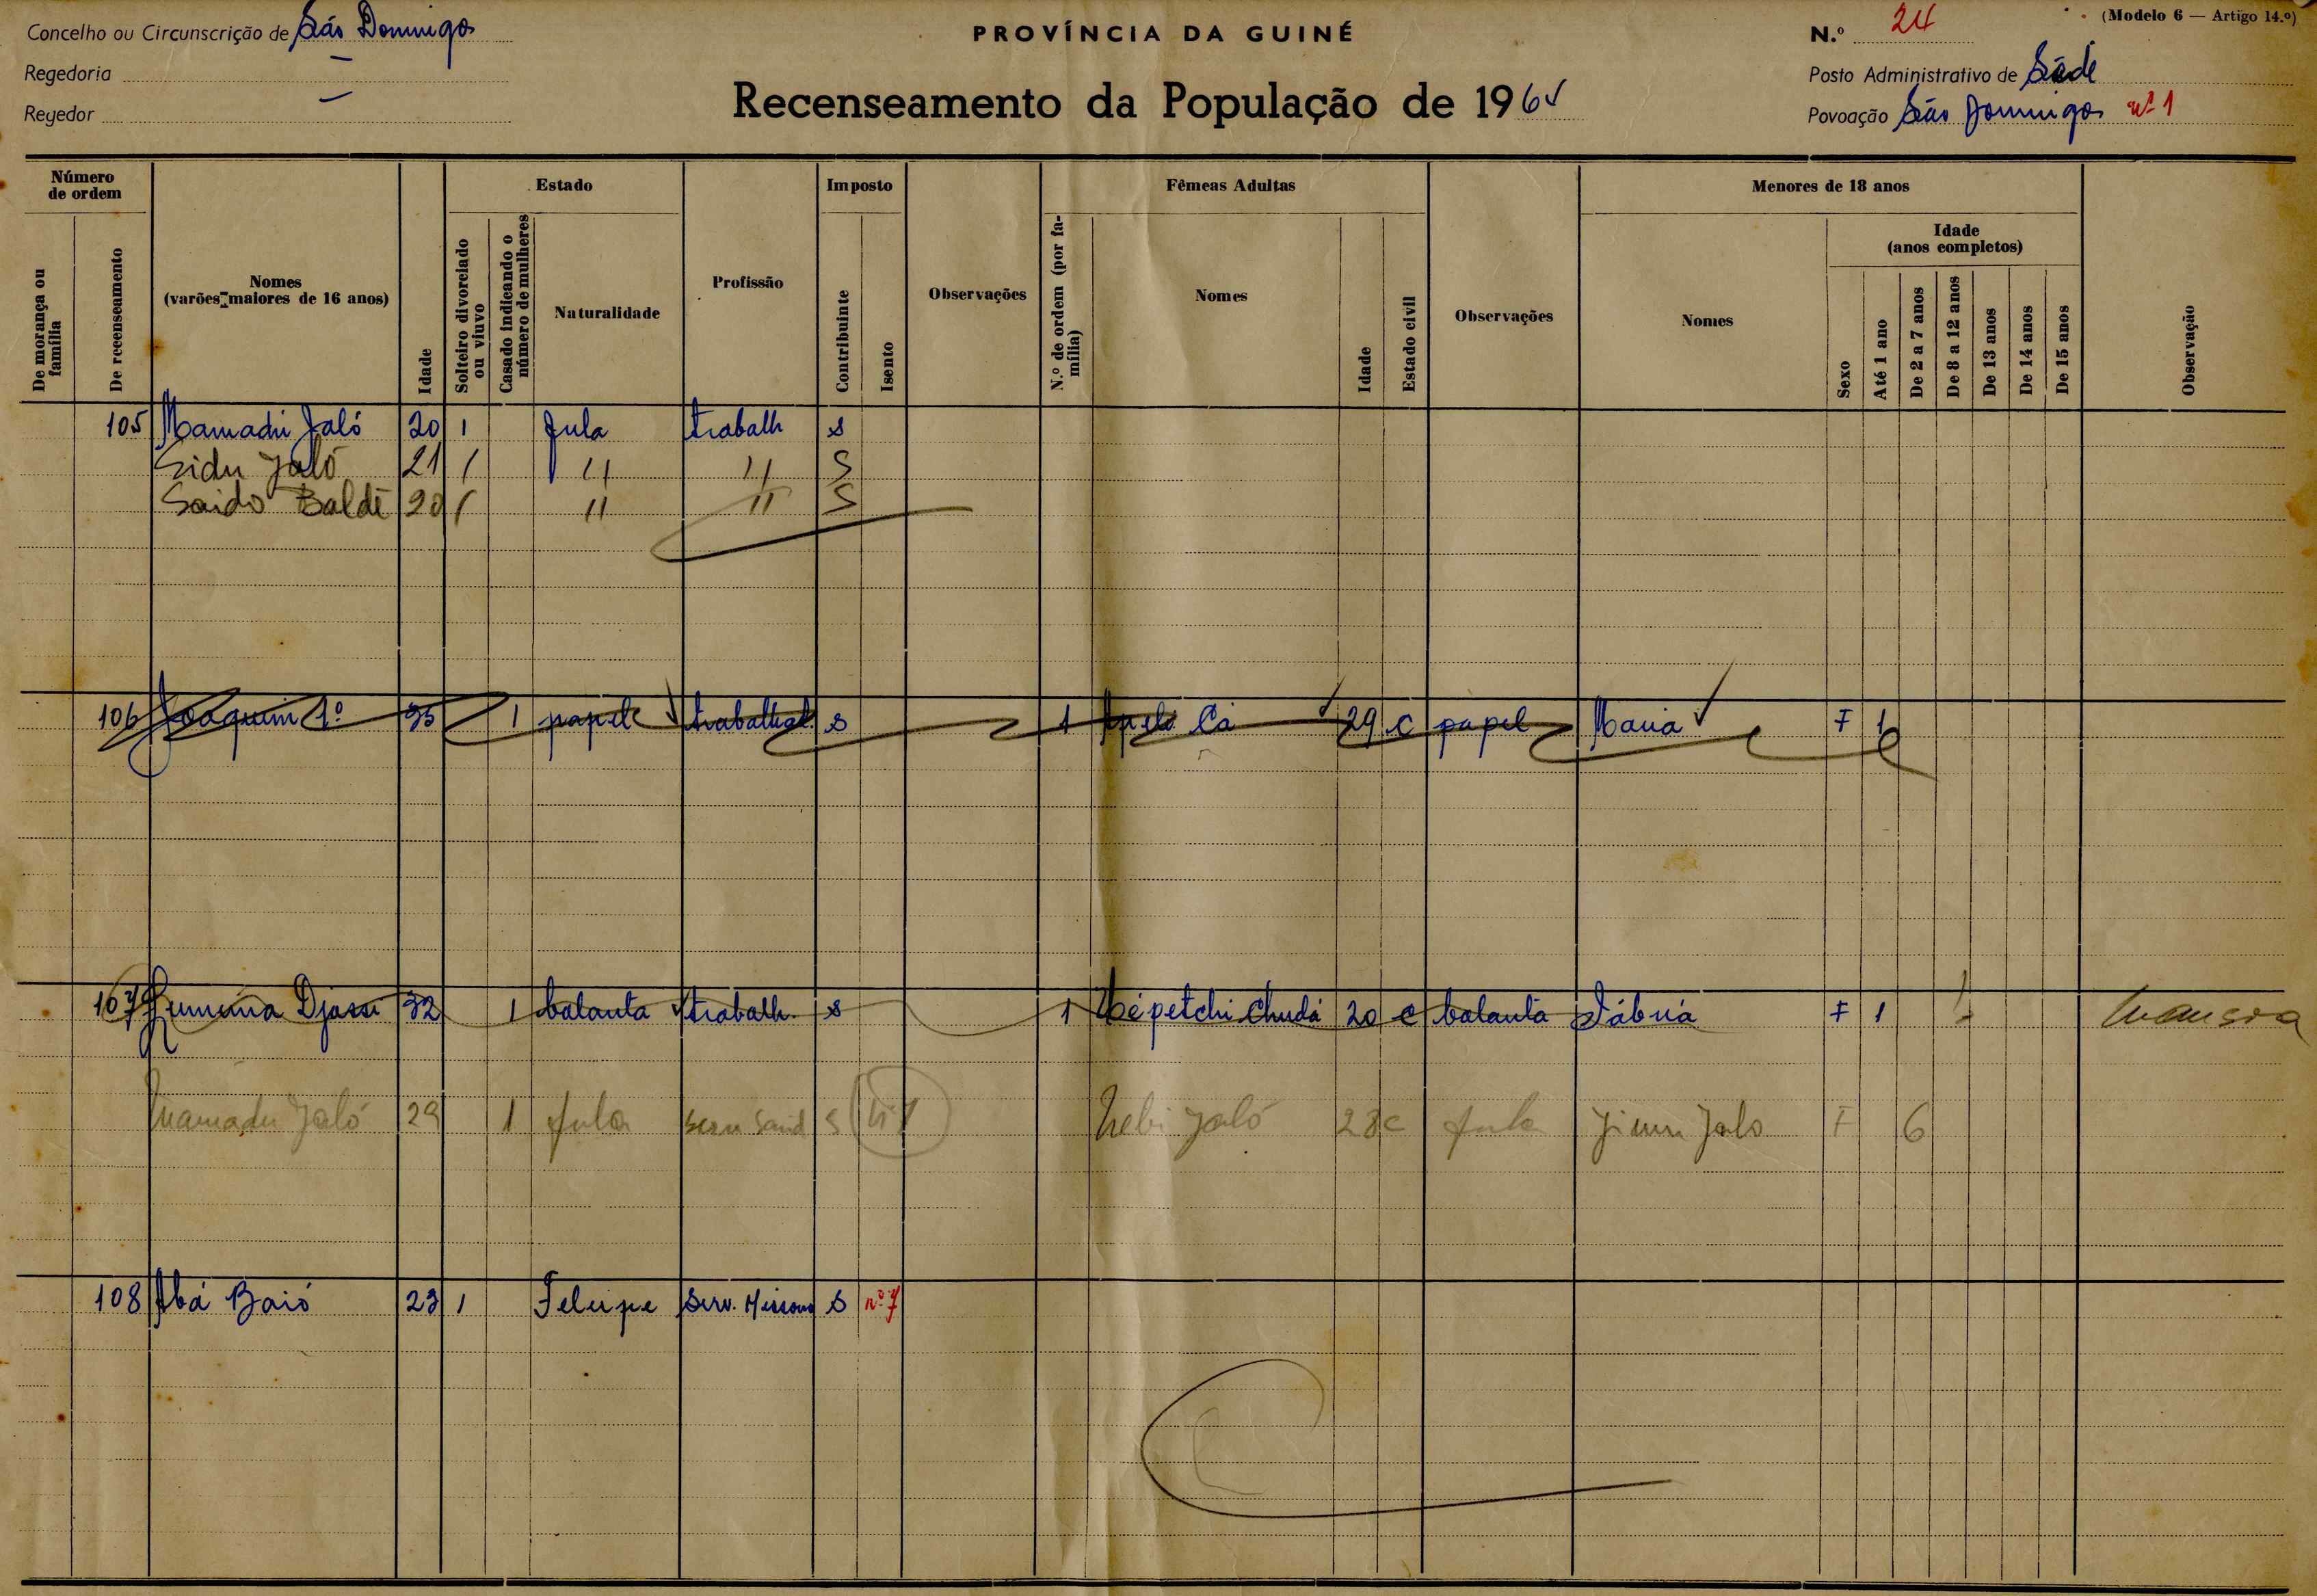 Concelho ou Circunscrição de São Domingos
Regedoria —
Regedor —
PROVÍNCIA DA GUINÉ
Recenseamento da População de 1964
(Modelo 6 — Artigo 14.º)
N.º 24
Posto Administrativo de Séde
Povoação São Domingos nº 1
Número de ordem
De morança ou família
De recenseamento
Nomes
(varões maiores de 16 anos)
Idade
Estado
Solteiro divorciado ou viuvo
Casado indicando o número de mulheres
Naturalidade
Profissão
Imposto
Contribuinte
Isento
Observações
Fêmeas Adultas
N.º de ordem (por família)
Nomes
Idade
Estado civil
Observações
Menores de 18 anos
Nomes
Sexo
Idade
(anos completos)
Até 1 ano
De 2 a 7 anos
De 8 a 12 anos
De 13 anos
De 14 anos
De 15 anos
Observação
105 Mamadú Jaló 20 1 fula trabalh s
Sidu Jaló 21 1 " " S
Saido Baldé 20 1 " " S
106 Joaquim 1º 35 1 papel trabalhad. s 1 Cá 29 c papel Maria F 1
107 Djassi 32 1 balanta trabalh. s 1 Chudá 20 c balanta F 1 Mansoa
Mamadu Jaló 29 1 fula S nº 1 Jaló 28 c fula Jalo F 6
108 Abá Baió 23 1 Felupe Serv. S nº 7